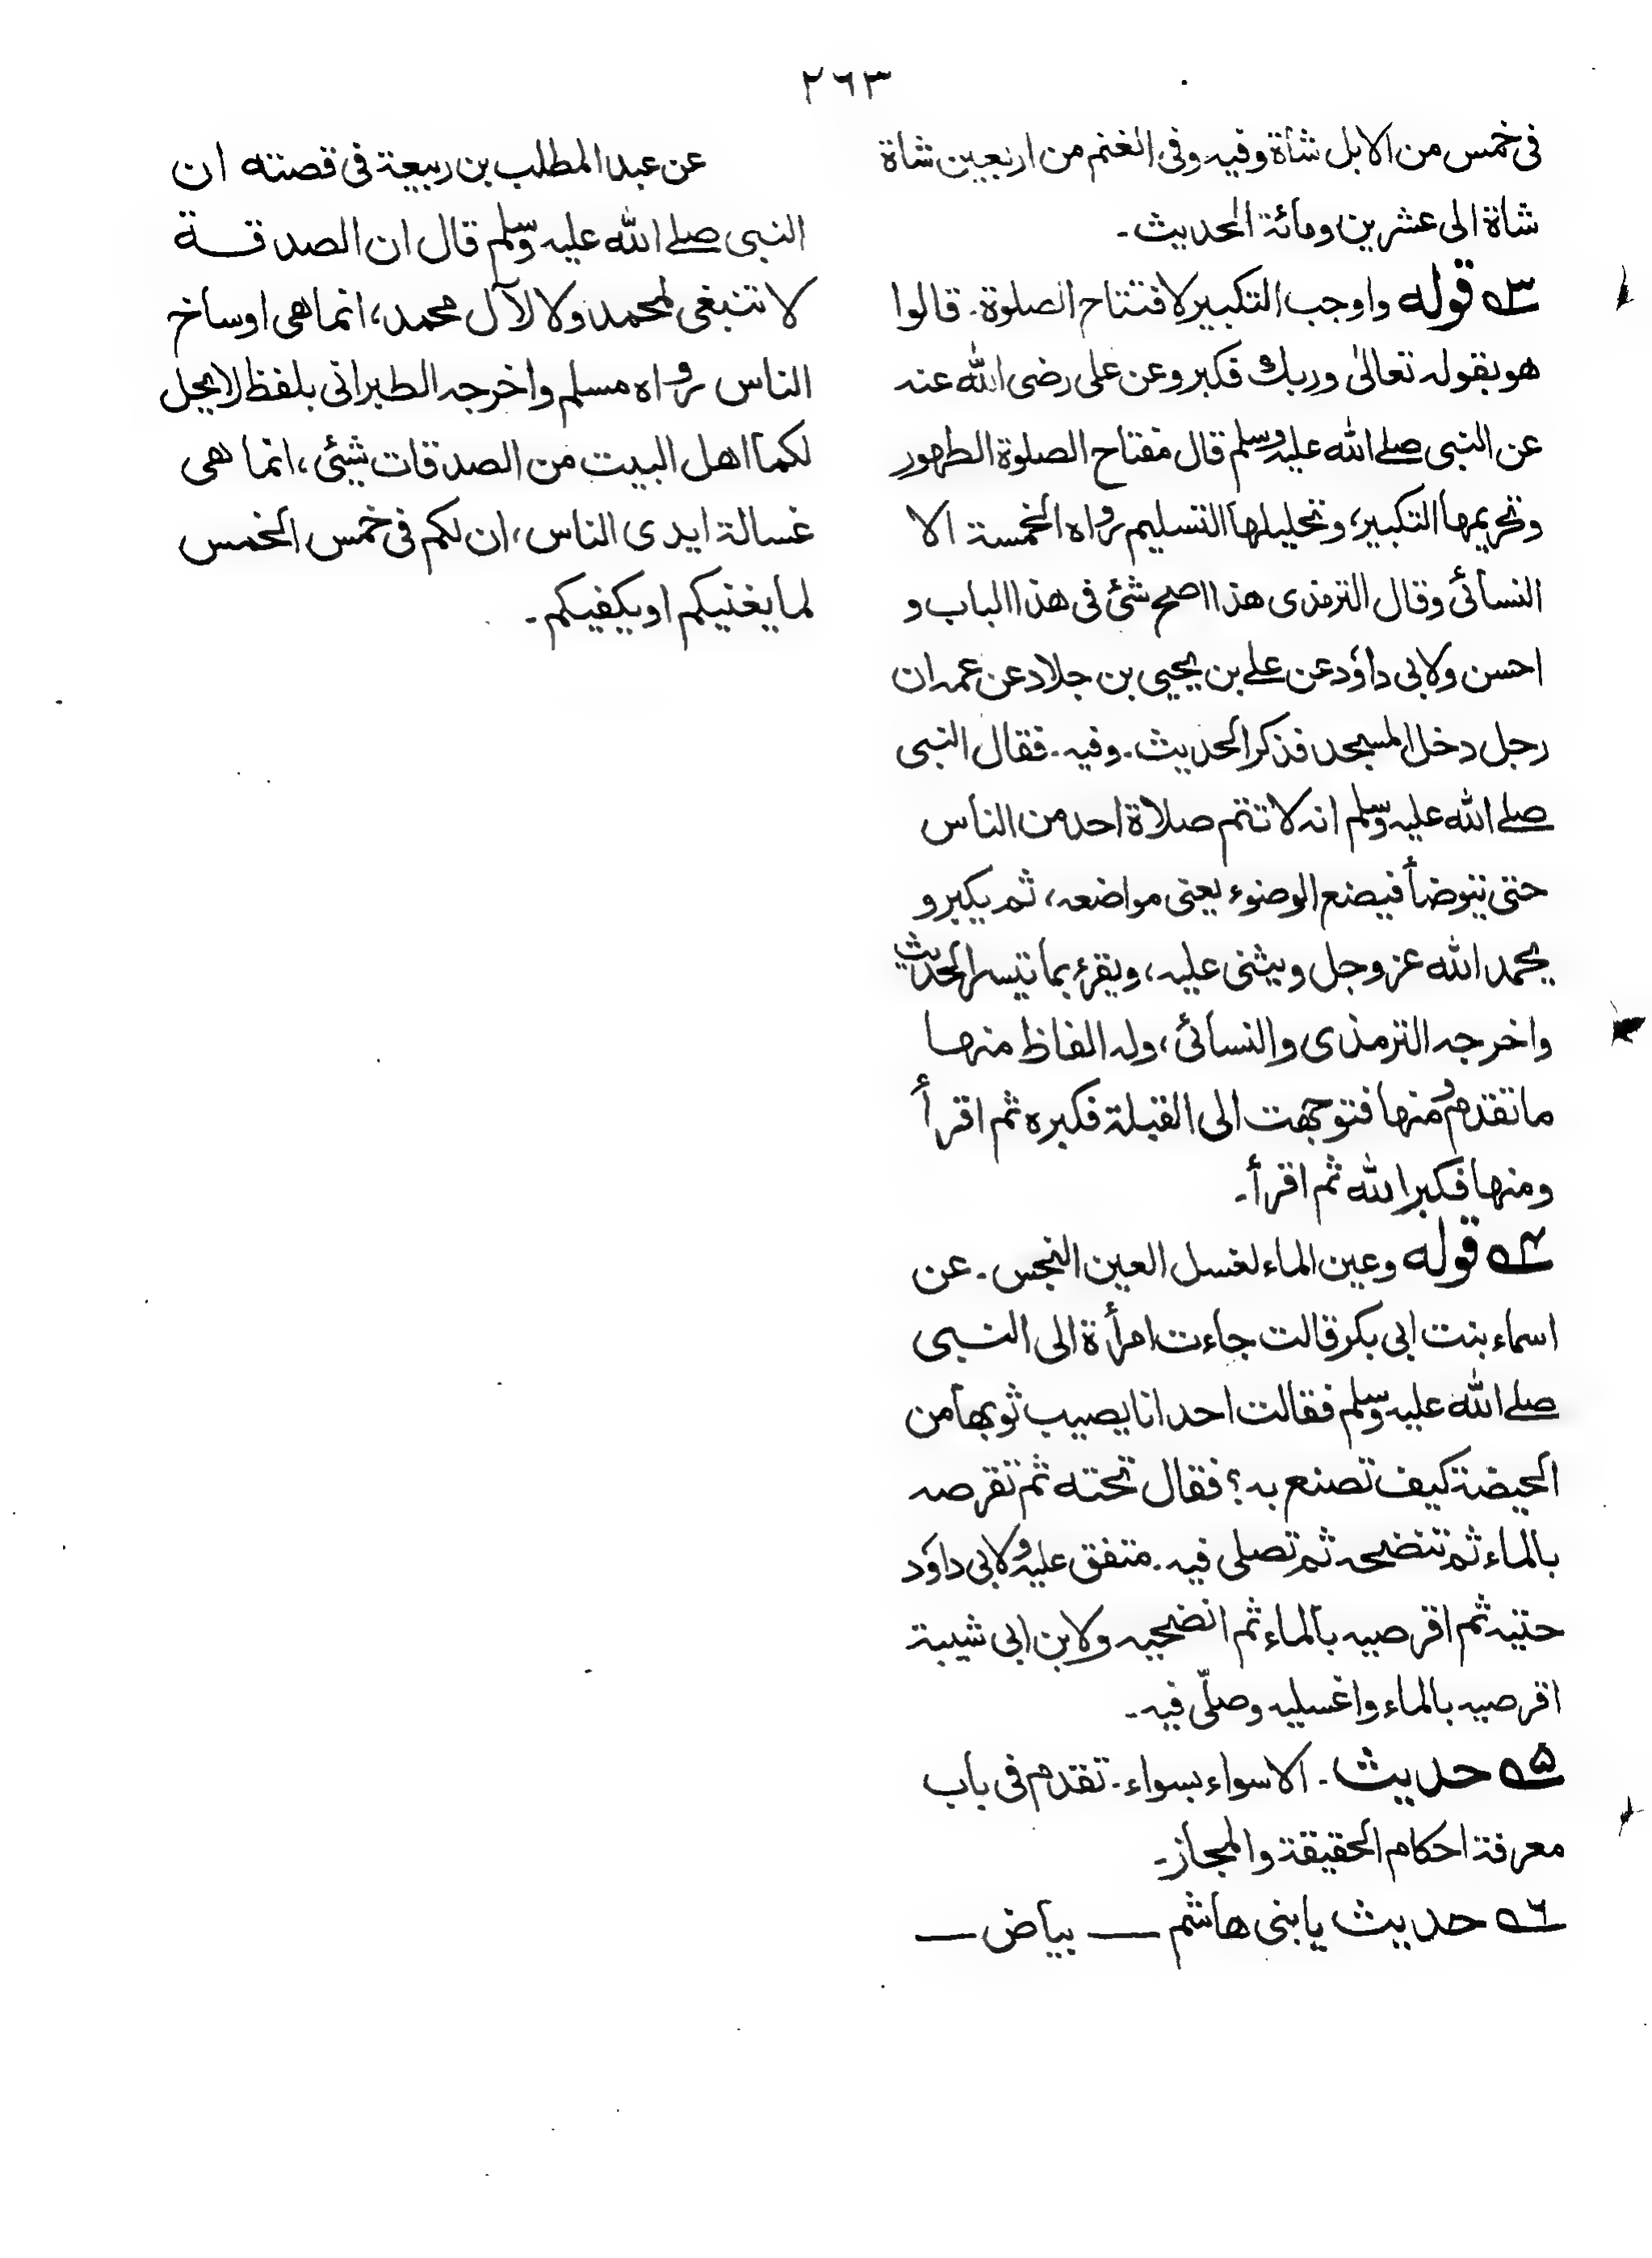 ٢٦٣
فى خمس من الابل شاة وفيه وفى الغنم من اربعين شاة
شاة الى عشرين ومائة الحديث۔
٣ه قوله واوجب التكبير لافتتاح الصلوة۔ قالوا
هو بقوله تعالىٰ وربك فكبر وعن على رضى الله عنه
عن النبى صلے الله عليه وسلم قال مفتاح الصلوة الطهور
وتحريمها التكبير، وتحليلها التسليم رواه الخمسة الا
النسائى وقال الترمذى هذا اصح شئ فى هذا الباب و
احسن ولابى داؤد عن علے بن يحيى بن جلاد عن عمه ان
رجل دخل المسجد فذكر الحديث۔ وفيه۔ فقال النبى
صلے الله عليه وسلم انه لا تتم صلاة احد من الناس
حتى يتوضأ فيضع الوضوء يعنى مواضعه، ثم يكبر و
يحمد الله عز وجل ويثنى عليه، ويقرء بما تيسر الحديث
واخرجه الترمذى والنسائى، وله الفاظ منها
ما تقدم ومنها فتوجهت الى القبلة فكبره ثم اقرأ
ومنها فكبر الله ثم اقرأ۔
۴ه قوله وعين الماء لغسل العين النجس۔ عن
اسماء بنت ابى بكر قالت جاءت امرأة الى النبى
صلے الله عليه وسلم فقالت احدانا يصيب ثوبها من
الحيضة كيف تصنع به؟ فقال تحته ثم تقرصه
بالماء ثم تنضحه ثم تصلى فيه۔ متفق عليه ولابى داؤد
حتيه ثم اقرصيه بالماء ثم انضحيه ولابن ابى شيبة
اقرصيه بالماء واغسليه وصلّى فيه۔
۵ه حديث۔ الا سواء بسواء۔ تقدم فى باب
معرفة احكام الحقيقة والمجاز۔
٦ه حديث يا بنى هاشم —— بياض ——
عن عبد المطلب بن ربيعة فى قصته ان
النبى صلے الله عليه وسلم قال ان الصدقة
لا تنبغى لمحمد ولا لآل محمد، انما هى اوساخ
الناس رواه مسلم واخرجه الطبرانى بلفظ لا يحل
لكما اهل البيت من الصدقات شئى، انما هى
غسالة ايدى الناس، ان لكم فى خمس الخمس
لما يغنيكم او يكفيكم۔